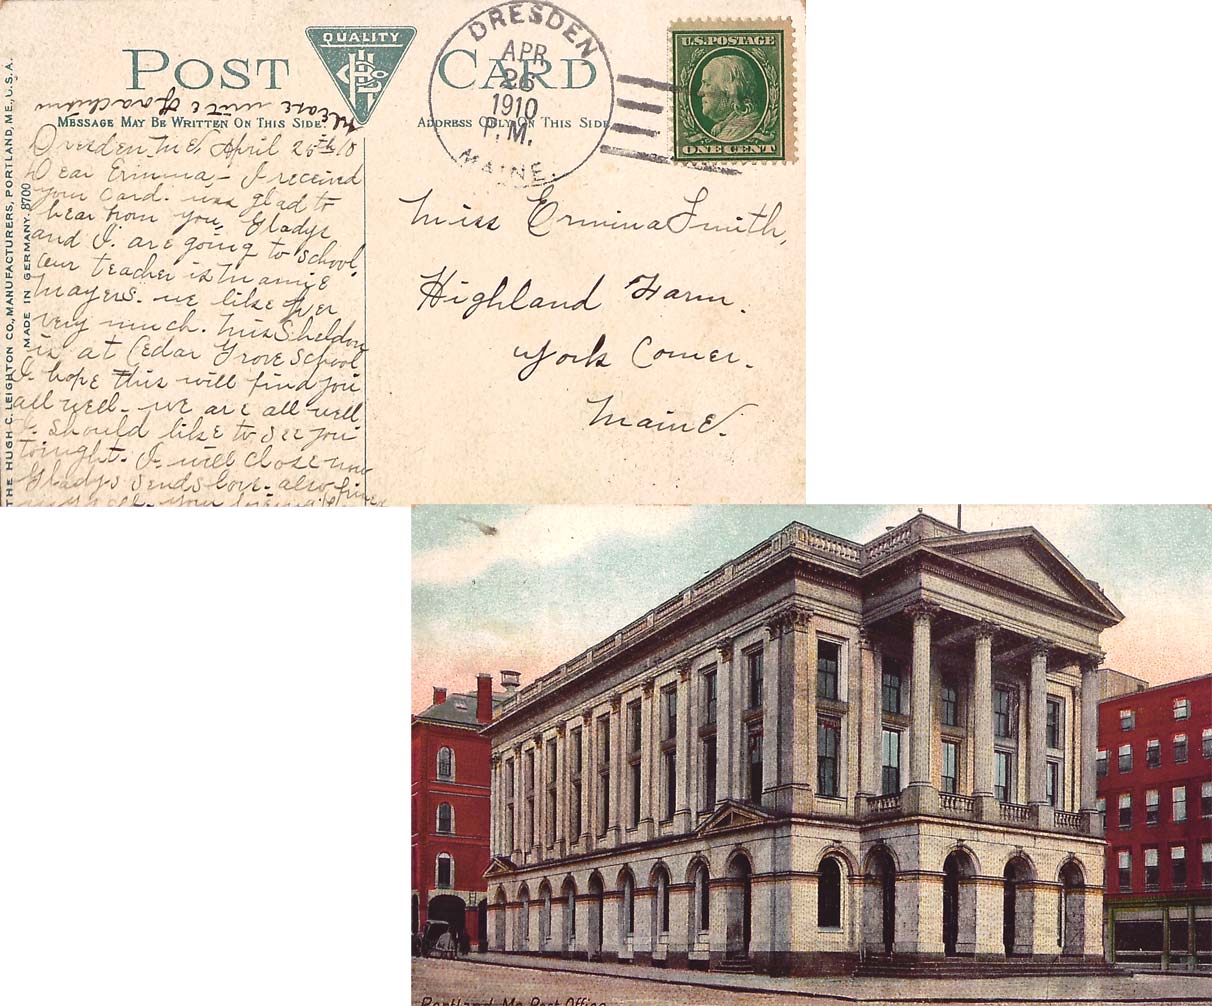 POST CARD
QUALITY
DRESDEN
APR
26
1910
P.M.
MAINE.
U.S. POSTAGE
ONE CENT
Please write
MESSAGE MAY BE WRITTEN ON THIS SIDE.
ADDRESS ONLY ON THIS SIDE
THE HUGH C. LEIGHTON CO., MANUFACTURERS, PORTLAND, ME., U.S.A.
MADE IN GERMANY. 8700
Dresden, Me. April 26th 10
Dear Ermina, - I received
your Card. was glad to
hear from you, Gladys
and I. are going to school,
our teacher is Mamie
Mayers. we like her
very much. Miss Sheldon
is at Cedar Grove School
I hope this will find you
all well. we are all well
I should like to see you
tonight. I will close now
Gladys sends love. also
Miss Ermina Smith,
Highland Farm.
York Corner.
Maine.
Portland, Me. Post Office